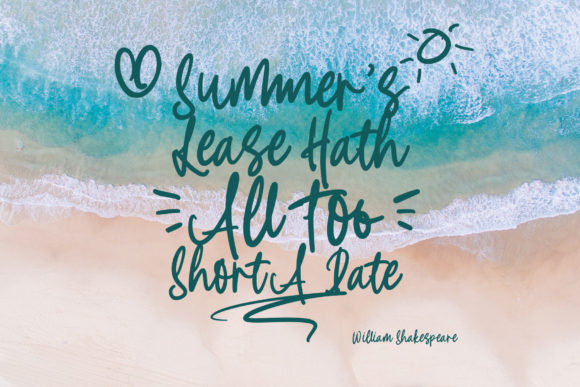 Summer's
Lease Hath
All too
Short A Date
William Shakespeare